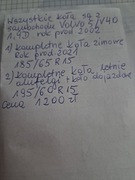 Wszystkie koła są z
samochodu Volvo S/V40
1,9D rok prod 2002
1) kompletne koła zimowe
rok prod 2021
185/65 R15
2) kompletne koła letnie
alufelgi + koło dojazdowe
195/60 R15
Cena 1200 zł